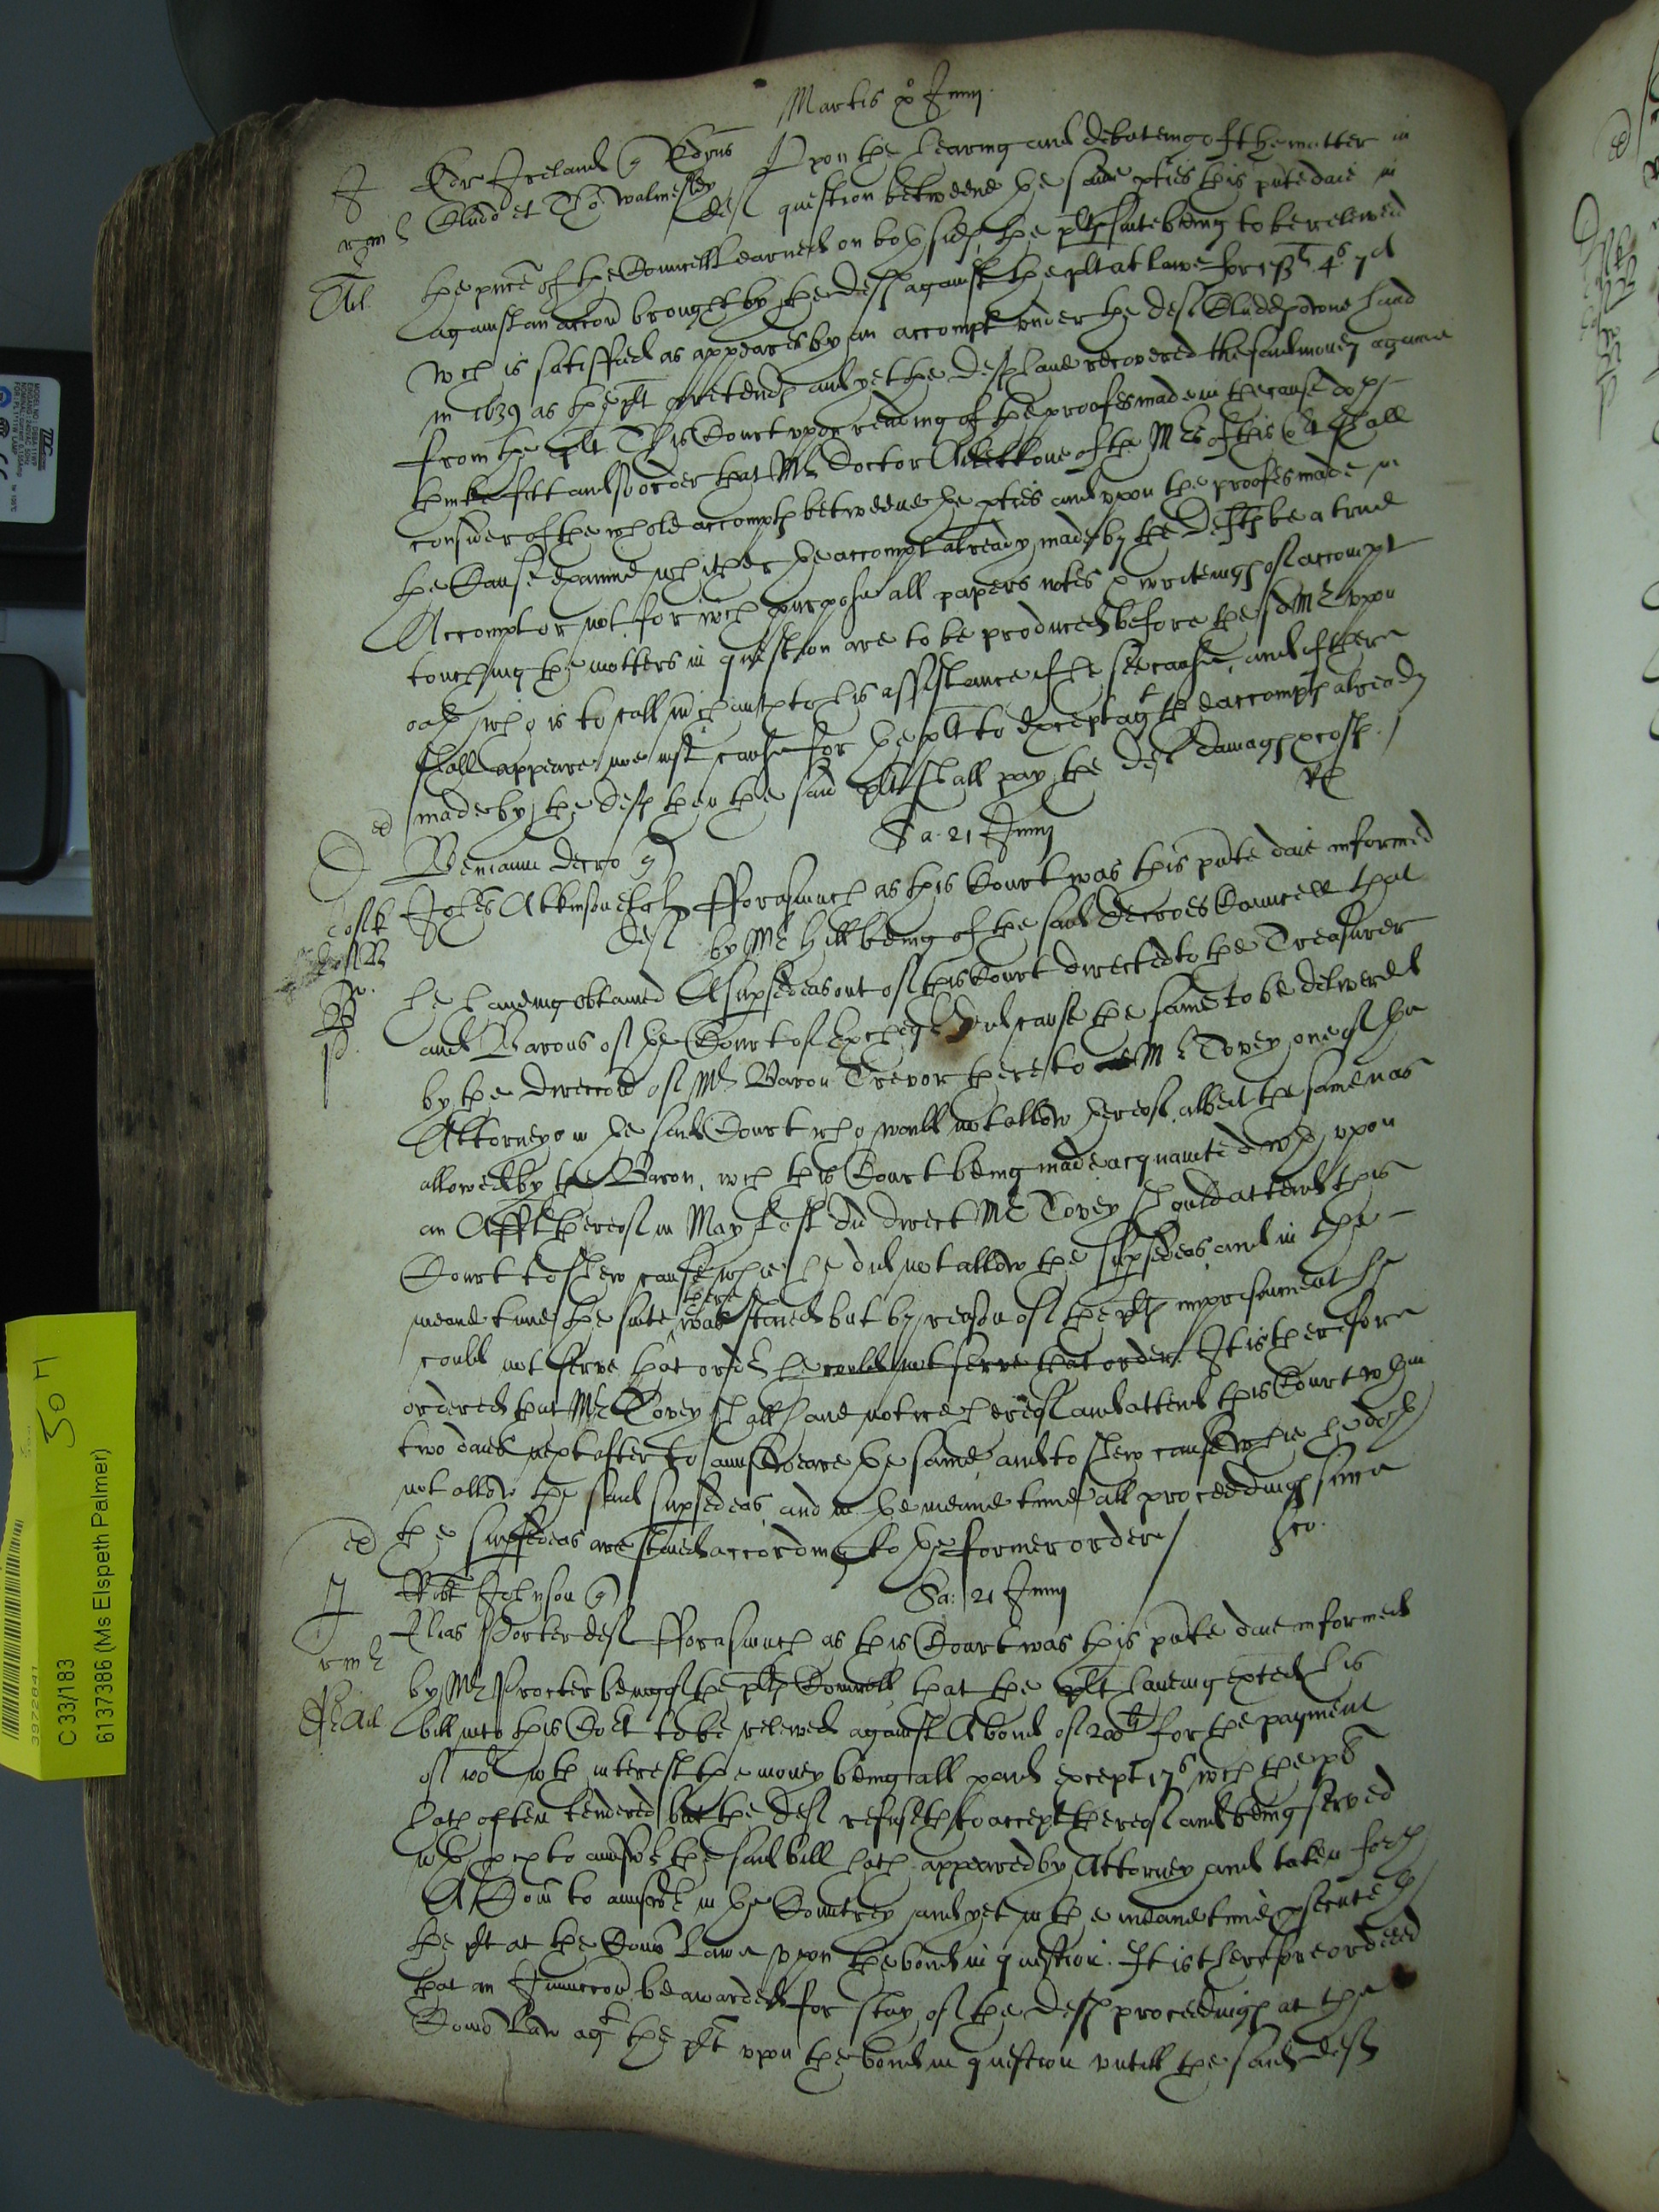 Martis xo Junij
J Edr Ireland q Edrus Upon the hearing and debateing of the matter in
rmr Gludd et Tho Walmesley def question betweene the same pties this pnte daie in
the pnce of the Councell learned on both sids, the plts suite being to be releived
against an accon brought by the defts against the plt at lawe for
4s 7d
wch is satisfied as appeares by an accompt under the def owne hand
in 1639 as the plt pretends and yet the defts have recovered the said money againe
from the plt This Court upon reading of the proofes made in the cause doth
thinke fitt and so order that Mr Doctor one of the Mrs of this Ct shall
consider of the whole accompts betweene the pties and upon the proofes made in
the Cause examine whither the accompt already made by the Defts be a true
Accompt or not. for wch purpose all papers notes & writeings of accompt
touching the matters in question are to be produced before the sd Mr upon
oath, who is to call m'chants to his assistance if he see cause, and if there
shall appeare noe iust cause for the plt to except agt the accompts already
made by the defts then the said plt shall pay the def damags & costs.
Sa. 21 Junij
D Beniamin Decro q
Johes Atkinson et als Fforasmuch as this Court was this pnte daie informed
def by Mr Hill being of the said Decroes Councell that
he haveing obtained A supsedeas out of this Court directed to the Treasurer
and Barons of the Court of Exchequer did cause the same to be delivered
by the direccon of Mr Baron Trevor there to Mr Tovey one of the
Attorneys in the said Court who would not allow thereof, albeit the same was
allowed by the Baron, wch this Court being made acquainted wth upon
an Afft thereof in May last did direct Mr Tovey should attend this
Court to shew cause whie he did not allow the supsedeas and in the
meane time the suite there was staied but by reason of the plts imprisonment he
could not serve that order he could not serve that order. It is therefore
ordered that Mr Tovey shall have notice hereof and attend this Court wthin
two daies next after to answeare the same, and to shew cause whie he doth
not allow the said supsedeas, and in the meane time all proceedings since
the supsedeas are staied according to the former order
Sa: 21 Junij
J Robt Johnson q
Elias Porter def Fforasmuch as this Court was this pnte daie informed
rmr by Mr Procter being of the plts Councell, that the plt haveing exted his
bill into this Cort to be releived against A bond of 200li for the payment
of 100l wth interest the money being all paid except 17s wch the plt
hath often tendered but the def refuseth to accept thereof and being served
wth pces to answer the said bill hath appeared by Attorney and taken forth
A Com to answer in the Countrey and yet in the meane time psecuteth
the plt at the Comon Lawe upon the bond in question. It is therefore ordered
that an Iniunccon be awarded for stay of the defts proceedings at the
Comon Law agt the plt upon the bond in question untill the said deft
50 H
C 33/183
6137386 (Ms Elspeth Palmer)